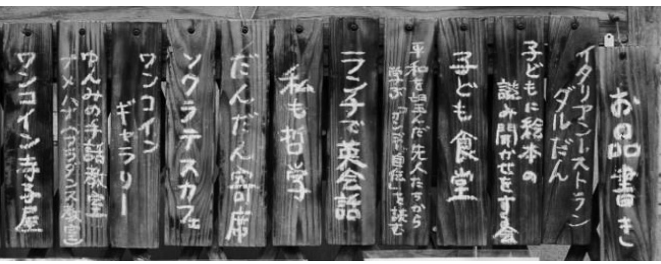 お品書き
イタリアンレストラン
ダルだん
子どもに絵本の
読み開かせをする会
子ども食堂
平和を望んだ先人たちから
学ぶ「ガンジー自伝」を読む
ランチで英会話
私も哲学
だんだん寄席
ソクラテスカフェ
ワンコイン
ギャラリー
ゆんみの手話教室
プメハナ(フラダンス教室)
ワンコイン寺子屋